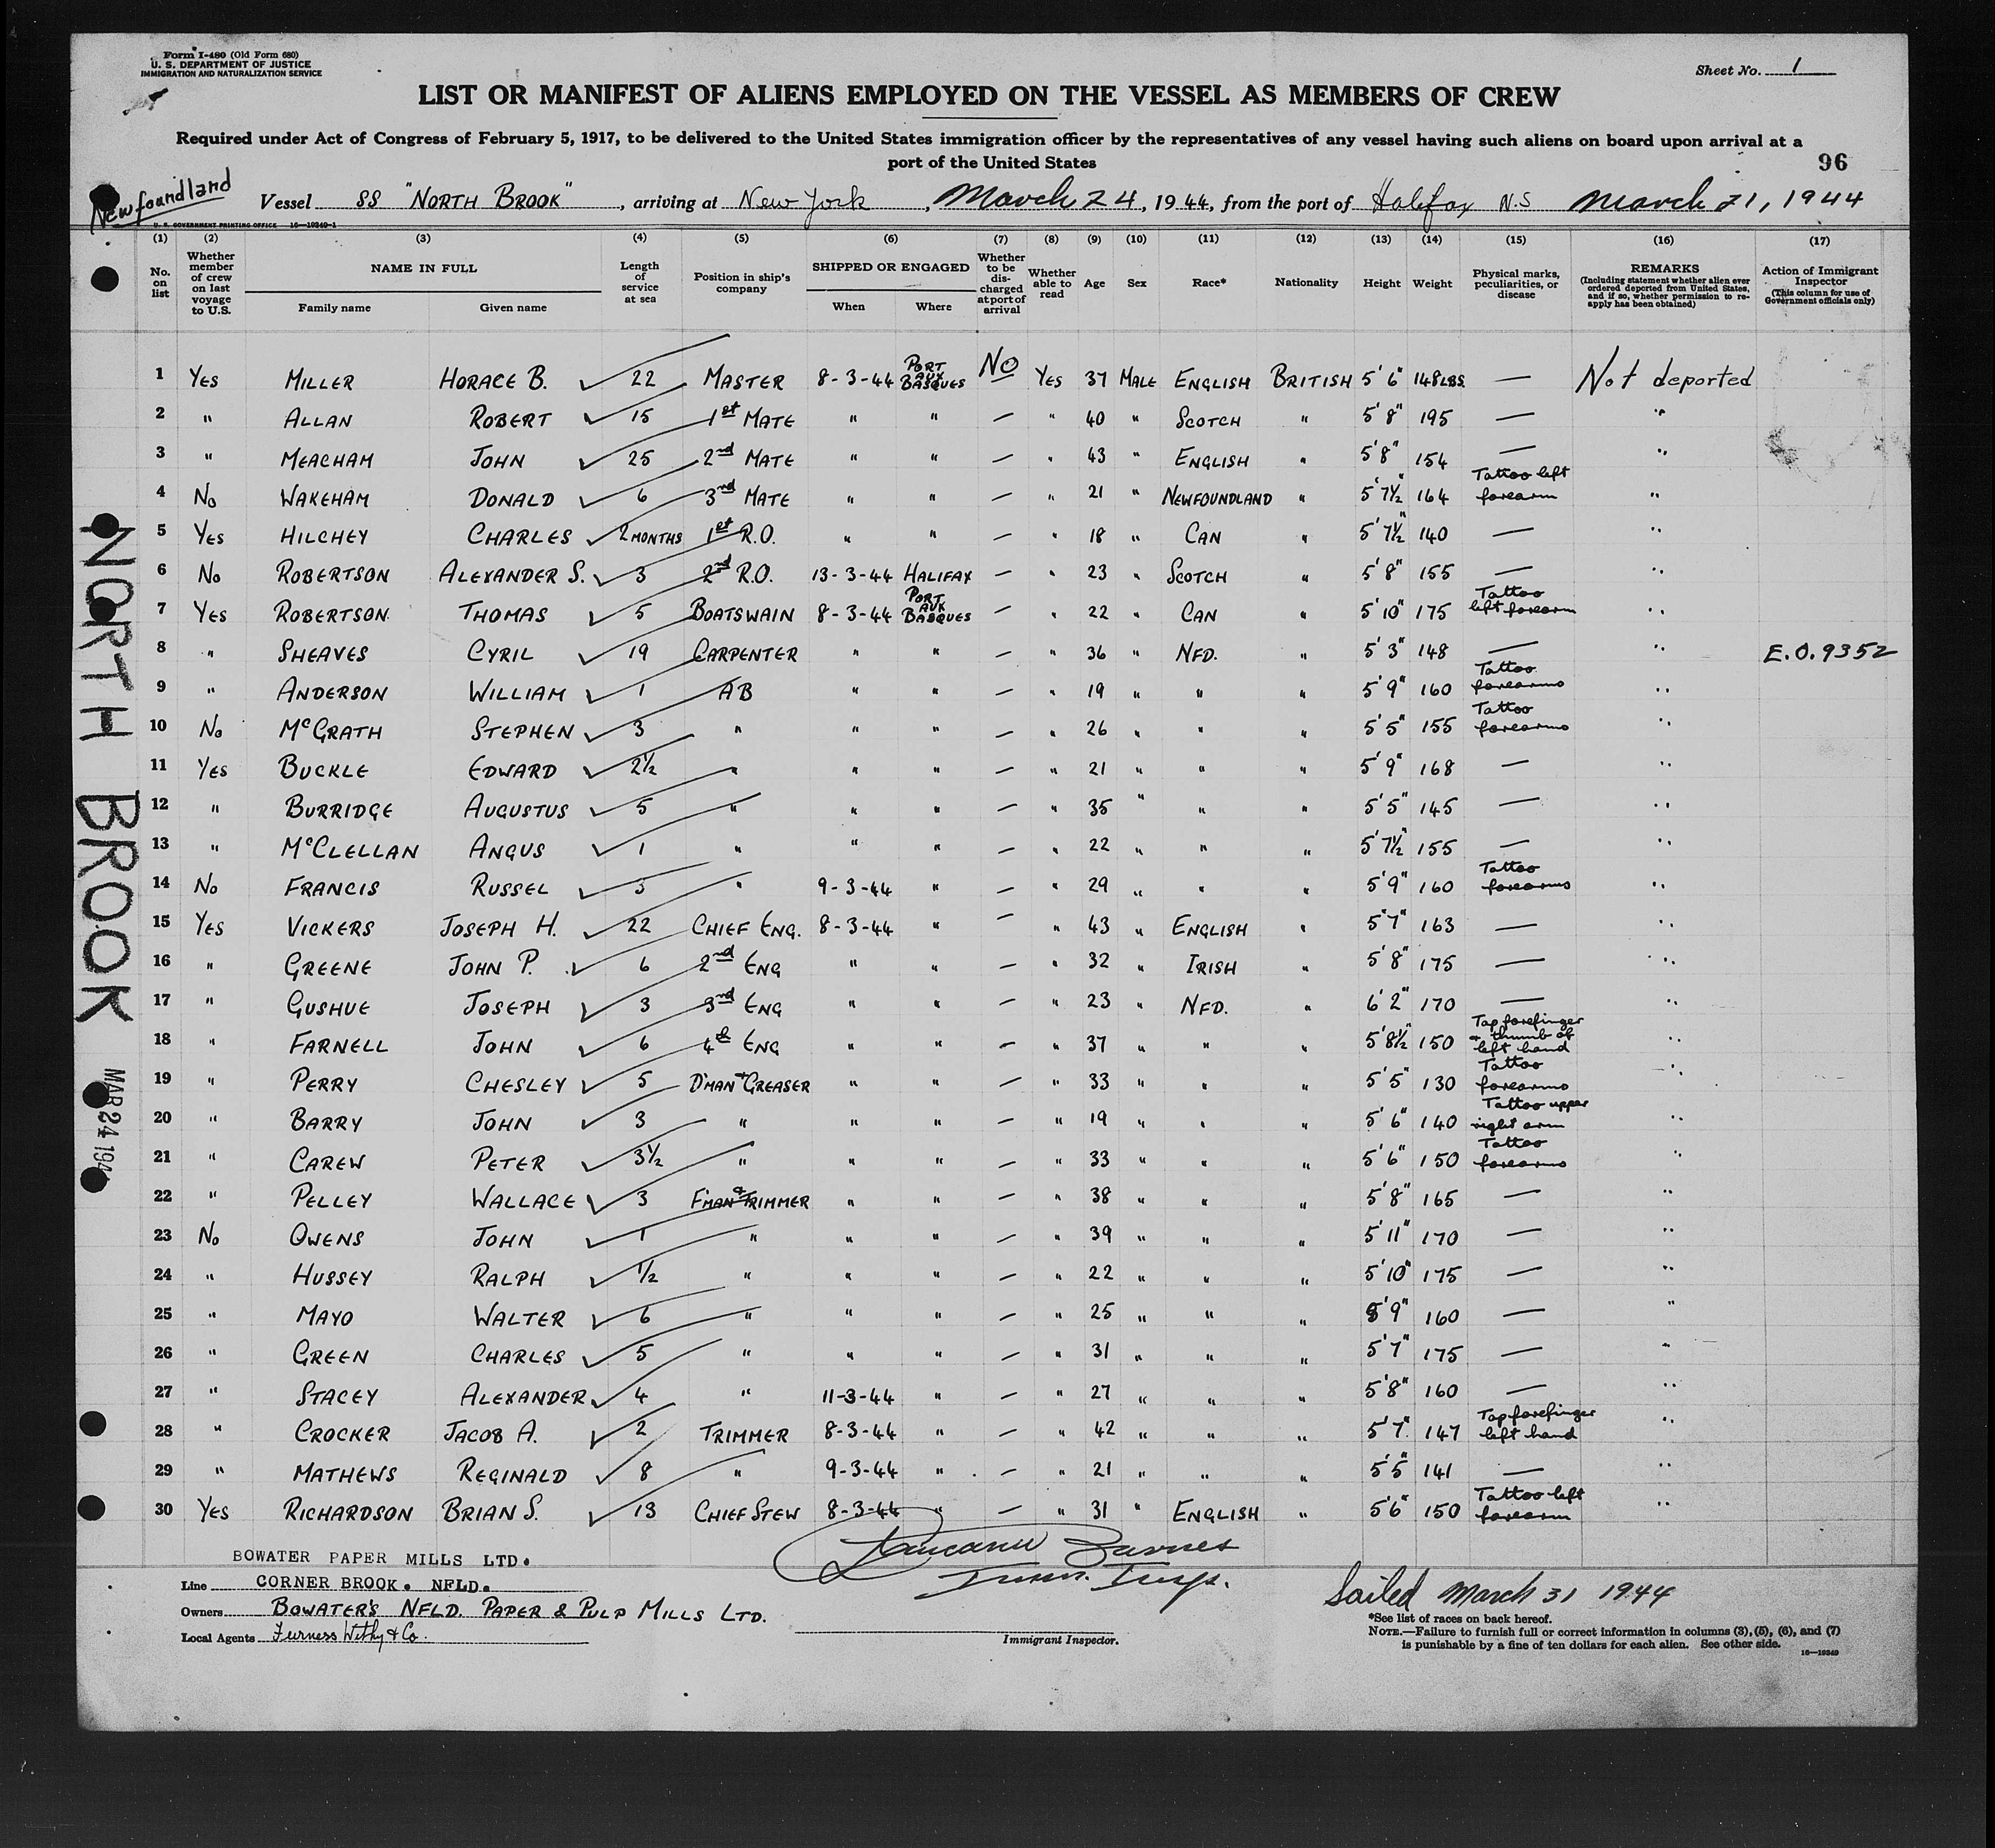 Form I-480 (Old Form 680)
U. S. DEPARTMENT OF JUSTICE
IMMIGRATION AND NATURALIZATION SERVICE
Sheet No. 1
LIST OR MANIFEST OF ALIENS EMPLOYED ON THE VESSEL AS MEMBERS OF CREW
Required under Act of Congress of February 5, 1917, to be delivered to the United States immigration officer by the representatives of any vessel having such aliens on board upon arrival at a
port of the United States
96
Newfoundland
Vessel SS "NORTH BROOK", arriving at New York, March 24, 1944, from the port of Halifax N.S March 21, 1944
U. S. GOVERNMENT PRINTING OFFICE 16-19240-1
(1) (2) (3) (4) (5) (6) (7) (8) (9) (10) (11) (12) (13) (14) (15) (16) (17)
No. on list
Whether member of crew on last voyage to U.S.
NAME IN FULL
Family name Given name
Length of service at sea
Position in ship's company
SHIPPED OR ENGAGED
When Where
Whether to be discharged at port of arrival
Whether able to read
Age
Sex
Race*
Nationality
Height
Weight
Physical marks, peculiarities, or disease
REMARKS
(Including statement whether alien ever ordered deported from United States, and if so, whether permission to reapply has been obtained)
Action of Immigrant Inspector
(This column for use of Government officials only)
1 YES MILLER HORACE B. ✓ 22 MASTER 8-3-44 PORT AUX BASQUES NO YES 37 MALE ENGLISH BRITISH 5'6" 148LBS — Not deported
2 " ALLAN ROBERT ✓ 15 1st MATE " " — " 40 " SCOTCH " 5'8" 195 — "
3 " MEACHAM JOHN ✓ 25 2nd MATE " " — " 43 " ENGLISH " 5'8" 154 — "
4 NO WAKEHAM DONALD ✓ 6 3rd MATE " " — " 21 " NEWFOUNDLAND " 5'7½" 164 Tattoo left forearm "
5 YES HILCHEY CHARLES ✓ 2 MONTHS 1st R.O. " " — " 18 " CAN " 5'7½" 140 — "
6 NO ROBERTSON ALEXANDER S. ✓ 3 2nd R.O. 13-3-44 HALIFAX — " 23 " SCOTCH " 5'8" 155 — "
7 YES ROBERTSON THOMAS ✓ 5 BOATSWAIN 8-3-44 PORT AUX BASQUES — " 22 " CAN " 5'10" 175 Tattoo left forearm "
8 " SHEAVES CYRIL ✓ 19 CARPENTER " " — " 36 " NFD. " 5'3" 148 — " E.O. 9352
9 " ANDERSON WILLIAM ✓ 1 AB " " — " 19 " " " 5'9" 160 Tattoo forearms "
10 NO McGRATH STEPHEN ✓ 3 " " " — " 26 " " " 5'5" 155 Tattoo forearms "
11 YES BUCKLE EDWARD ✓ 2½ " " " — " 21 " " " 5'9" 168 — "
12 " BURRIDGE AUGUSTUS ✓ 5 " " " — " 35 " " " 5'5" 145 — "
13 " McCLELLAN ANGUS ✓ 1 " " " — " 22 " " " 5'7½" 155 — "
14 NO FRANCIS RUSSEL ✓ 3 " 9-3-44 " — " 29 " " " 5'9" 160 Tattoo forearms "
15 YES VICKERS JOSEPH H. ✓ 22 CHIEF ENG. 8-3-44 " — " 43 " ENGLISH " 5'7" 163 — "
16 " GREENE JOHN P. ✓ 6 2nd ENG " " — " 32 " IRISH " 5'8" 175 — "
17 " GUSHUE JOSEPH ✓ 3 3rd ENG " " — " 23 " NFD. " 6'2" 170 — "
18 " FARNELL JOHN ✓ 6 4th ENG " " — " 37 " " " 5'8½" 150 Top forefinger & thumb of left hand "
19 " PERRY CHESLEY ✓ 5 D'MAN & GREASER " " — " 33 " " " 5'5" 130 Tattoo forearms "
20 " BARRY JOHN ✓ 3 " " " — " 19 " " " 5'6" 140 Tattoo upper right arm "
21 " CAREW PETER ✓ 3½ " " " — " 33 " " " 5'6" 150 Tattoo forearms "
22 " PELLEY WALLACE ✓ 3 F'MAN & TRIMMER " " — " 38 " " " 5'8" 165 — "
23 NO OWENS JOHN ✓ 1 " " " — " 39 " " " 5'11" 170 — "
24 " HUSSEY RALPH ✓ ½ " " " — " 22 " " " 5'10" 175 — "
25 " MAYO WALTER ✓ 6 " " " — " 25 " " " 5'9" 160 — "
26 " GREEN CHARLES ✓ 5 " " " — " 31 " " " 5'7" 175 — "
27 " STACEY ALEXANDER ✓ 4 " 11-3-44 " — " 27 " " " 5'8" 160 — "
28 " CROCKER JACOB A. ✓ 2 TRIMMER 8-3-44 " — " 42 " " " 5'7" 147 Top forefinger left hand "
29 " MATHEWS REGINALD ✓ 8 " 9-3-44 " — " 21 " " " 5'5" 141 — "
30 YES RICHARDSON BRIAN S. ✓ 13 CHIEF STEW 8-3-44 " — " 31 " ENGLISH " 5'6" 150 Tattoo left forearm "
NORTH BROOK
MAR 24 194
BOWATER PAPER MILLS LTD.
Line CORNER BROOK. NFLD.
Owners BOWATER'S NFLD. PAPER & PULP MILLS LTD.
Local Agents Furness Withy & Co.
Barnes
Imm. Insp.
Immigrant Inspector.
Sailed March 31 1944
*See list of races on back hereof.
NOTE.—Failure to furnish full or correct information in columns (3), (5), (6), and (7)
is punishable by a fine of ten dollars for each alien. See other side.
16—19240